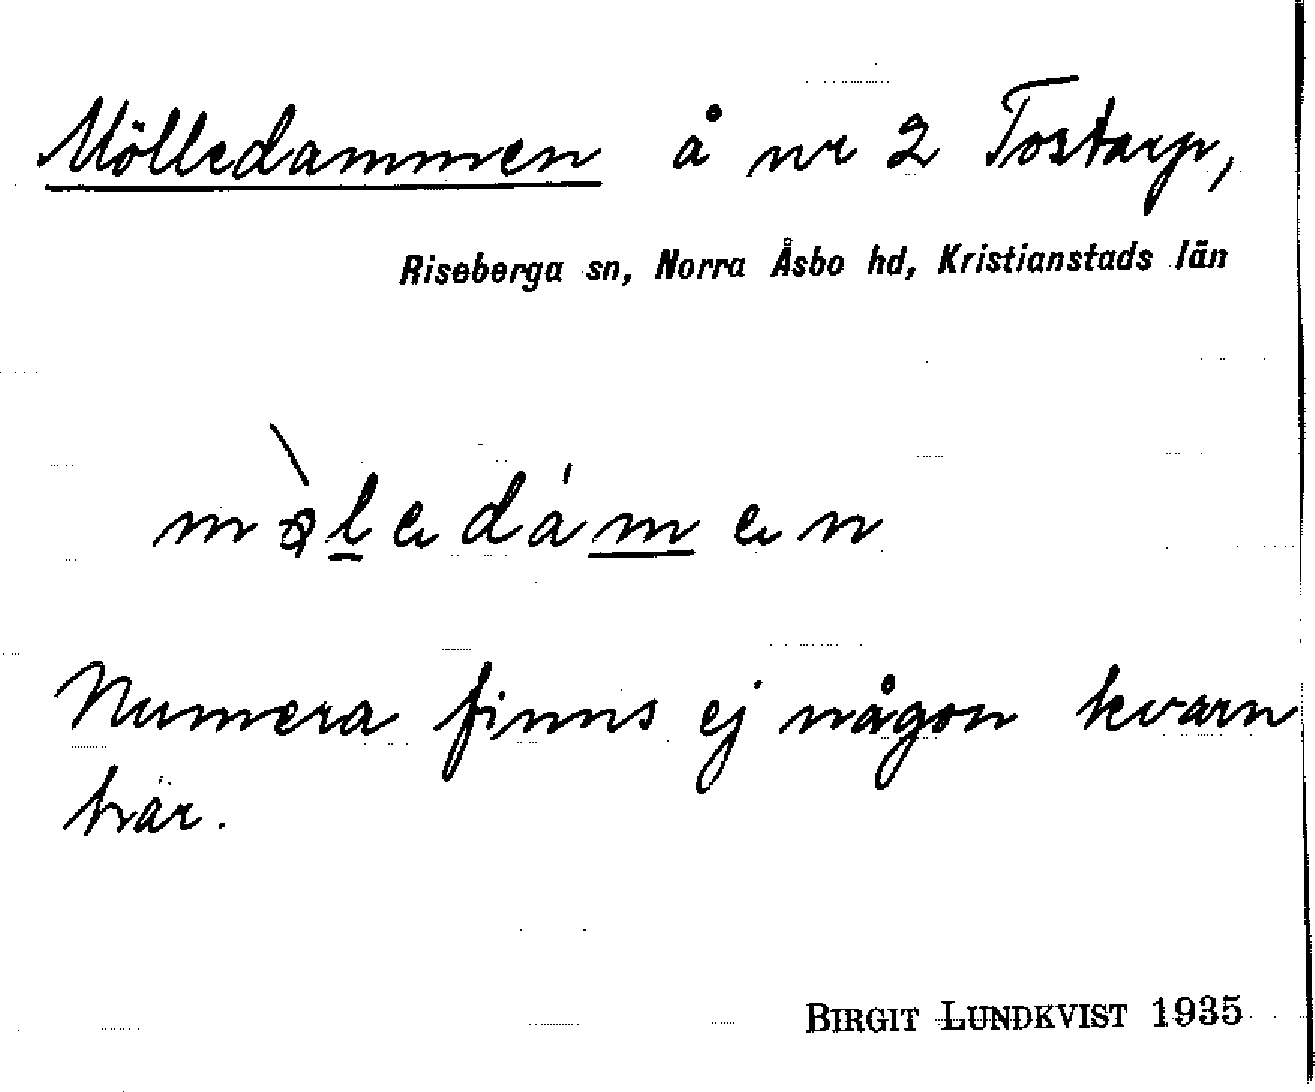 Mölledammen å nr 2 Tostarp,
Riseberga sn, Norra Åsbo hd, Kristianstads län
Numera finns ej någon kvarn
här.
BIRGIT LUNDKVIST 1935